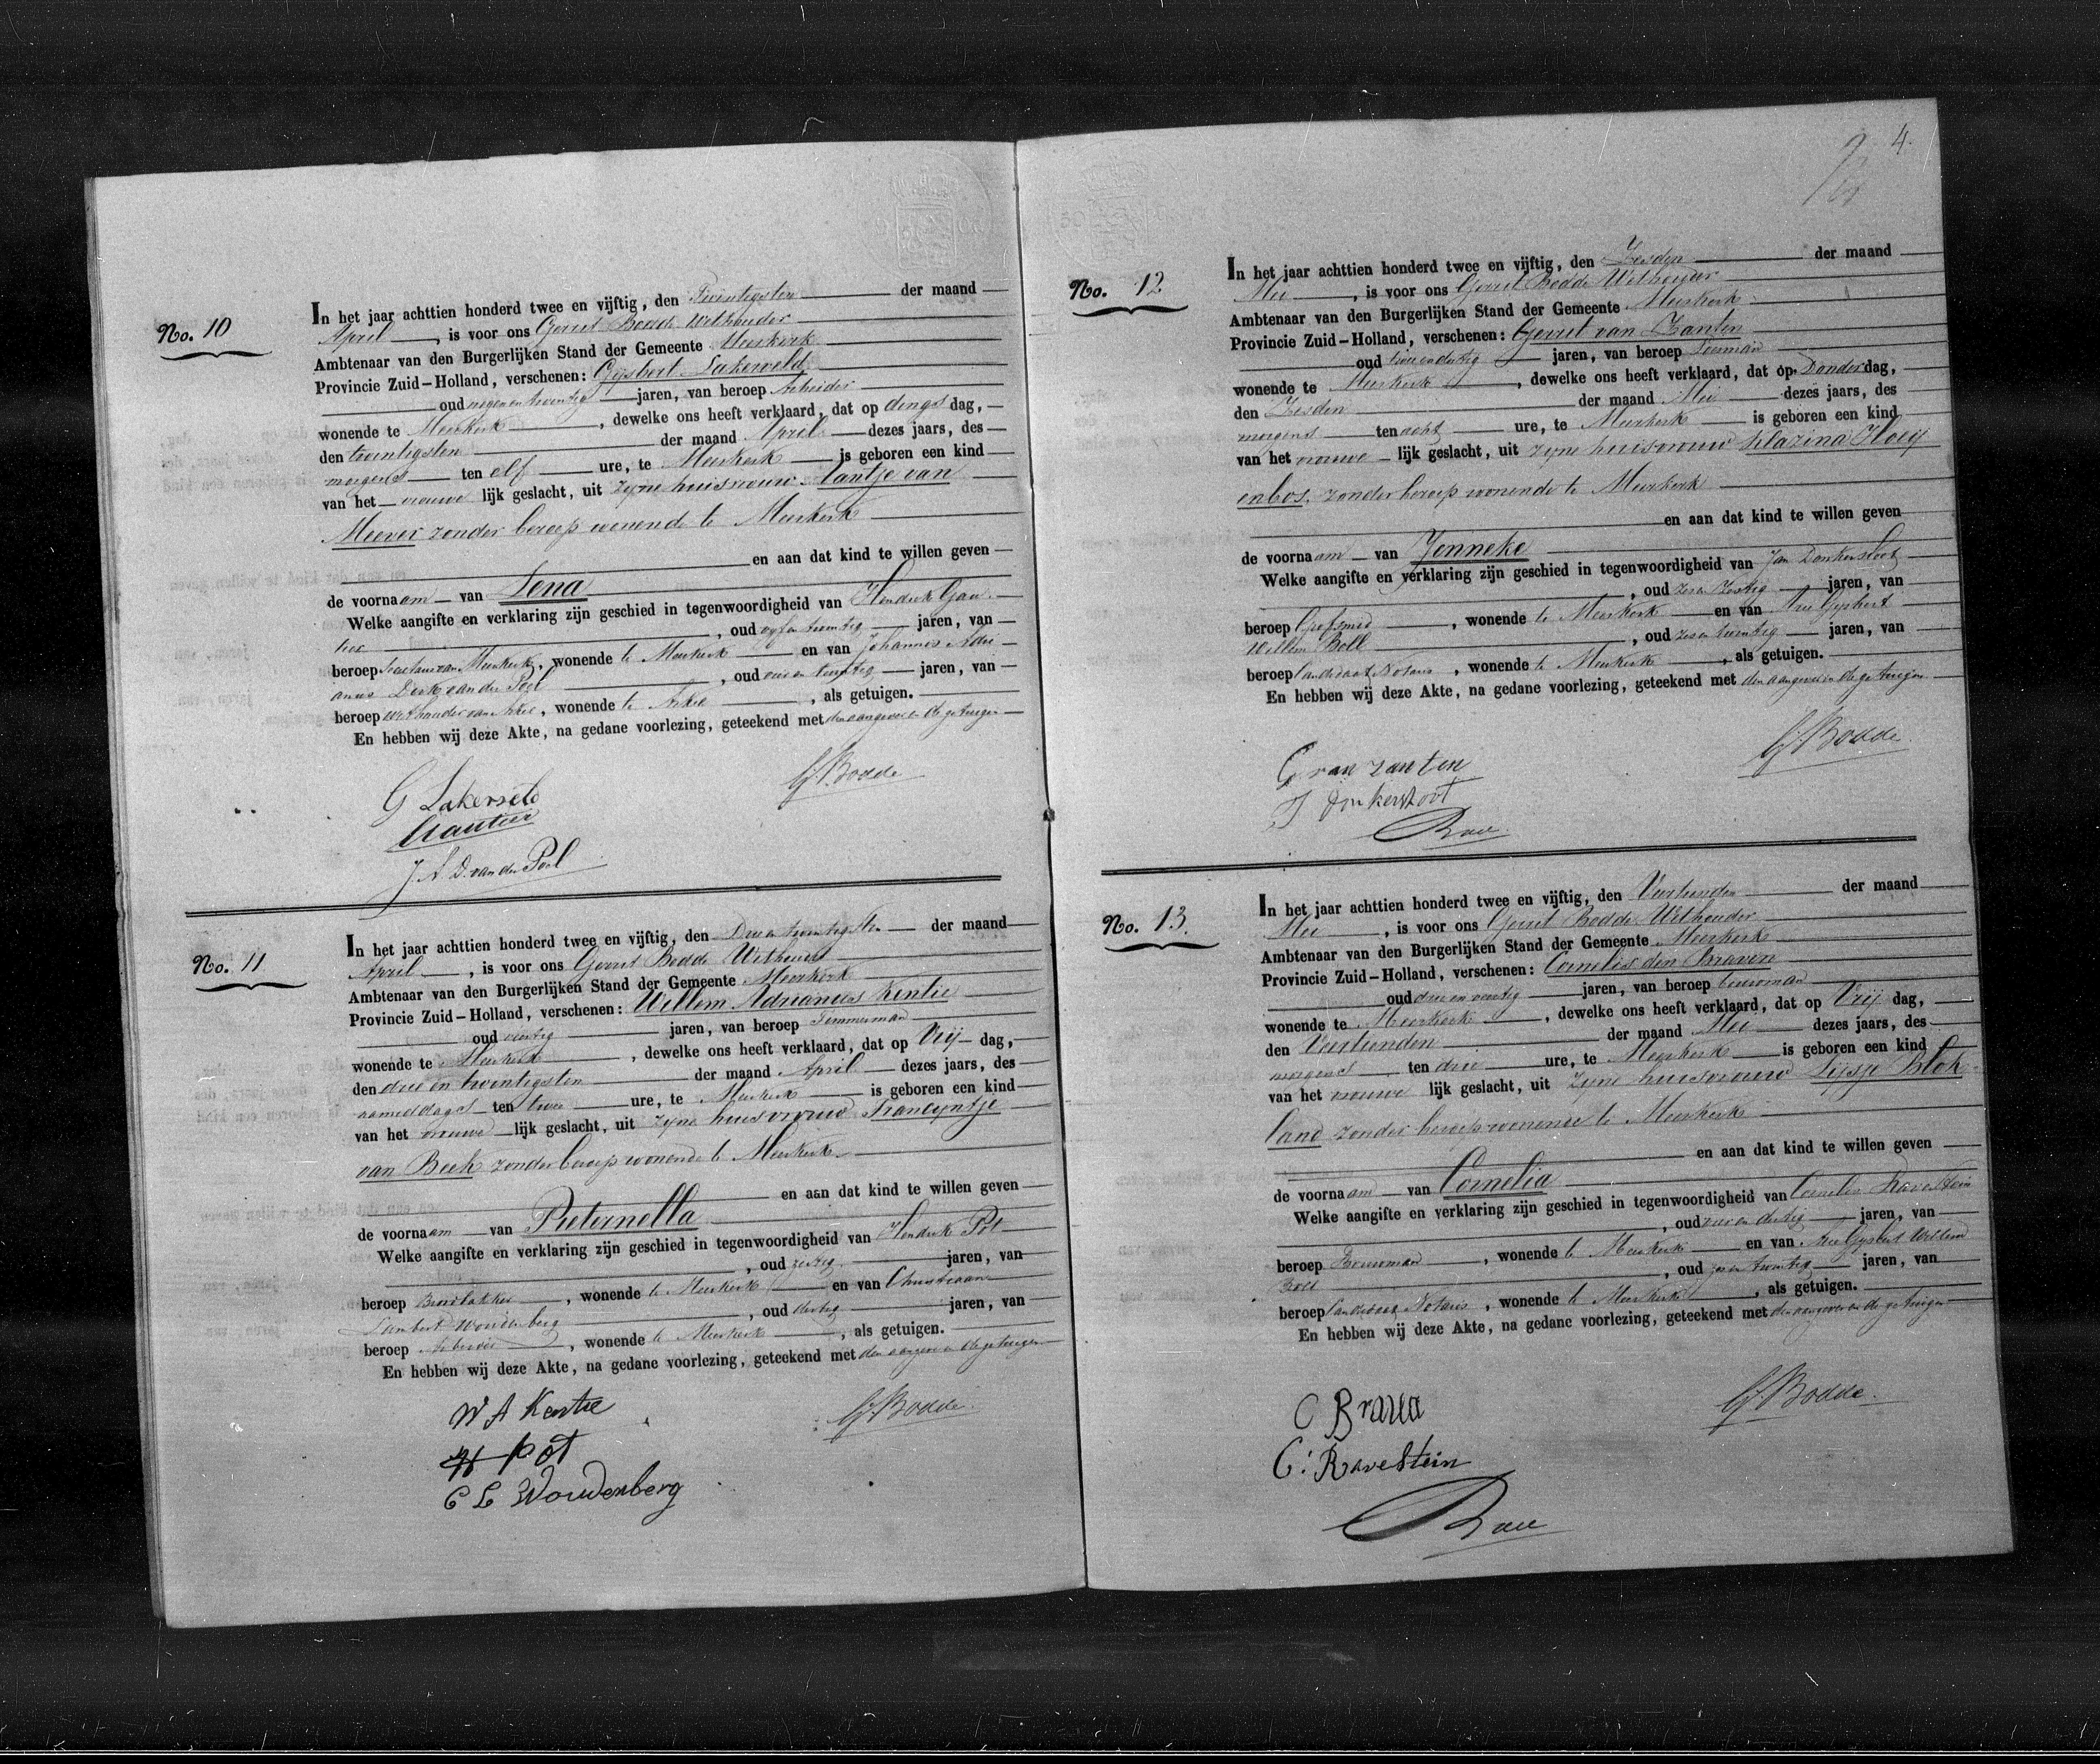 No. 10
In het jaar achttien honderd twee en vijftig, den Twintigsten der maand
April, is voor ons Gerrit Bodde Wethouder
Ambtenaar van den Burgerlijken Stand der Gemeente Meerkerk
Provincie Zuid-Holland, verschenen: Gijsbert Lakerveld
oud negen en twintig jaren, van beroep Arbeider
wonende te Meerkerk, dewelke ons heeft verklaard, dat op dings dag,
den twintigsten der maand April dezes jaars, des
morgens ten elf ure, te Meerkerk is geboren een kind
van het vrouwe lijk geslacht, uit zyne huisvrouw Jantje van
Meever zonder beroep wonende te Meerkerk
en aan dat kind te willen geven
de voornaam van Lena
Welke aangifte en verklaring zijn geschied in tegenwoordigheid van Hendrik Gau
tier, oud vyf en twintig jaren, van
beroep Secretaris van Meerkerk, wonende te Meerkerk en van Johannes Adri
anus Dirk van der Poel, oud en twintig jaren, van
beroep wethouder van Arkel, wonende te Arkel, als getuigen.
En hebben wij deze Akte, na gedane voorlezing, geteekend met den aangever en de getuigen
G Lakerveld
G. Bodde
Gautier
J. A. D. van der Poel
No. 11
In het jaar achttien honderd twee en vijftig, den Drie en twintigsten der maand
April, is voor ons Gerrit Bodde Wethouder
Ambtenaar van den Burgerlijken Stand der Gemeente Meerkerk
Provincie Zuid-Holland, verschenen: Willem Adrianus Kentie
oud veertig jaren, van beroep Timmerman
wonende te Meerkerk, dewelke ons heeft verklaard, dat op Vrij dag,
den drie en twintigsten der maand April dezes jaars, des
namiddags ten twee ure, te Meerkerk is geboren een kind
van het vrouwe lijk geslacht, uit zyne huisvrouw Francyntje
van Beek zonder beroep wonende te Meerkerk
en aan dat kind te willen geven
de voornaam van Pieternella
Welke aangifte en verklaring zijn geschied in tegenwoordigheid van Hendrik Pot
, oud zestig jaren, van
beroep Broodbakker, wonende te Meerkerk en van Christiaan
Lambert Woudenberg, oud dertig jaren, van
beroep Arbeider, wonende te Meerkerk, als getuigen.
En hebben wij deze Akte, na gedane voorlezing, geteekend met den aangever en de getuigen
W A Kentie
G. Bodde
H Pot
C L Woudenberg
4.
No. 12
In het jaar achttien honderd twee en vijftig, den Zesden der maand
Mei, is voor ons Gerrit Bodde Wethouder
Ambtenaar van den Burgerlijken Stand der Gemeente Meerkerk
Provincie Zuid-Holland, verschenen: Gerrit van Zanten
oud twee en dertig jaren, van beroep
wonende te Meerkerk, dewelke ons heeft verklaard, dat op Donderdag,
den Zesden der maand Mei dezes jaars, des
morgens ten acht ure, te Meerkerk is geboren een kind
van het vrouwe lijk geslacht, uit zyne huisvrouw Klazina Hoey
enbos, zonder beroep wonende te Meerkerk
en aan dat kind te willen geven
de voornaam van Jenneke
Welke aangifte en verklaring zijn geschied in tegenwoordigheid van Jan Donkersloot
, oud zes en zestig jaren, van
beroep Grofsmid, wonende te Meerkerk en van Arie Gysbert
Willem Boll, oud zes en twintig jaren, van
beroep Candidaat Notaris, wonende te Meerkerk, als getuigen.
En hebben wij deze Akte, na gedane voorlezing, geteekend met den aangever en de getuigen
G van Zanten
G. Bodde
J Donkersloot
No. 13.
In het jaar achttien honderd twee en vijftig, den Veertienden der maand
Mei, is voor ons Gerrit Bodde Wethouder
Ambtenaar van den Burgerlijken Stand der Gemeente Meerkerk
Provincie Zuid-Holland, verschenen: Cornelis den Braven
oud drie en veertig jaren, van beroep bouwman
wonende te Meerkerk, dewelke ons heeft verklaard, dat op Vrij dag,
den Veertienden der maand Mei dezes jaars, des
morgens ten drie ure, te Meerkerk is geboren een kind
van het vrouwe lijk geslacht, uit zyne huisvrouw Sijsje Blok
land zonder beroep wonende te Meerkerk
en aan dat kind te willen geven
de voornaam van Cornelia
Welke aangifte en verklaring zijn geschied in tegenwoordigheid van Cornelis Ravestein
, oud en dertig jaren, van
beroep Bouwman, wonende te Meerkerk en van Arie Gysbert Willem
Boll, oud zes en twintig jaren, van
beroep Candidaat Notaris, wonende te Meerkerk, als getuigen.
En hebben wij deze Akte, na gedane voorlezing, geteekend met den aangever en de getuigen
C Brava
G. Bodde.
C: Ravestein